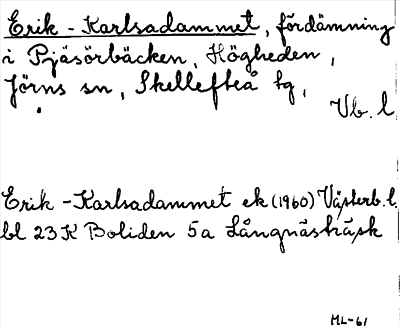 Erik-Karlsadammet, fördämning
i Pjäsörbäcken, Högheden,
Jörns sn, Skellefteå tg,
Vb. l.
Erik-Karlsadammet ek (1960) Västerb. l.
bl 23 K Boliden 5a Långnästräsk
ML-61